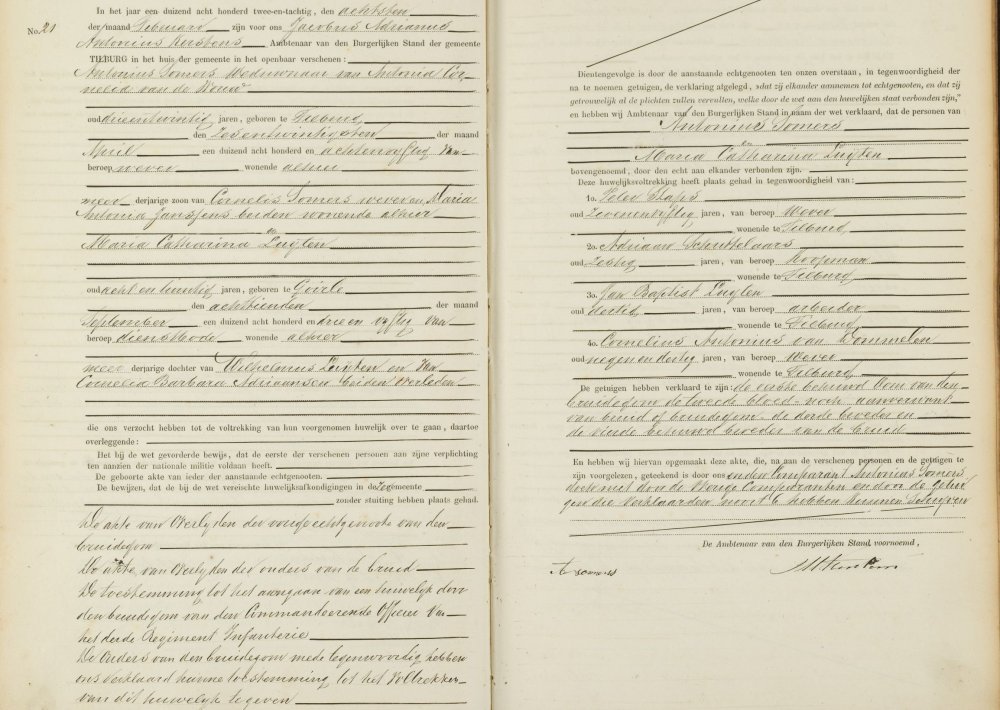 No. 21
In het jaar een duizend acht honderd twee-en-tachtig, den achtsten
der maand Februari zijn voor ons Jacobus Adrianus
Antonius Kerstens Ambtenaar van den Burgerlijken Stand der gemeente
TILBURG in het huis der gemeente in het openbaar verschenen:
Antonius Somers Weduwnaar van Antonia Cor-
nelia van de Wouw
oud drieentwintig jaren, geboren te Tilburg
den zesentwintigsten der maand
April een duizend acht honderd en achtenvyftig van
beroep wever wonende alhier
meer derjarige zoon van Cornelis Somers wever en Maria
Antonia Janssens beiden wonende alhier
en
Maria Catharina Luyten
oud acht en twintig jaren, geboren te Goirle
den achttienden der maand
September een duizend acht honderd en drie en vyftig van
beroep dienstbode wonende alhier
meer derjarige dochter van Wilhelmus Luyten en van
Cornelia Barbara Adriaansen beiden overleden
die ons verzocht hebben tot de voltrekking van hun voorgenomen huwelijk over te gaan, daartoe
overleggende:
Het bij de wet gevorderde bewijs, dat de eerste der verschenen personen aan zijne verpligting
ten aanzien der nationale militie voldaan heeft.
De geboorte akten van iedere der aanstaande echtgenooten.
De bewijzen, dat de bij de wet vereischte huwelijksafkondigingen in deze gemeente
zonder stuiting hebben plaats gehad.
De akte van Overlyden der vorige echtgenoote van den
bruidegom
De akte van Overlyden der ouders van de bruid
De toestemming tot het aangaan van een huwelijk door
den bruidegom van den Commandeerende Officier van
het derde Regiment Infanterie
De Ouders van den bruidegom mede tegenwoordig hebben
ons verklaard hunne toestemming tot het Voltrekken
van dit huwelijk te geven
Dientengevolge is door de aanstaande echtgenooten ten onzen overstaan, in tegenwoordigheid der
na te noemen getuigen, de verklaring afgelegd, »dat zij elkander aannemen tot echtgenooten, en dat zij
getrouwelijk al de plichten zullen vervullen, welke door de wet aan den huwelijken staat verbonden zijn,"
en hebben wij Ambtenaar van den Burgerlijken Stand in naam der wet verklaard, dat de personen van
Antonius Somers
en
Maria Catharina Luyten
bovengenoemd, door den echt aan elkander verbonden zijn.
Deze huwelijksvoltrekking heeft plaats gehad in tegenwoordigheid van:
1o. Peter Staps
oud Zevenenvyftig jaren, van beroep Wever
wonende te Tilburg
2o. Adriaan Schuttelaars
oud Zestig jaren, van beroep Koopman
wonende te Tilburg
3o. Jan Baptist Luyten
oud dertig jaren, van beroep arbeider
wonende te Tilburg
4o. Cornelius Antonius van Dommelen
oud negen en dertig jaren, van beroep Wever
wonende te Tilburg
De getuigen hebben verklaard te zijn: de eerste behuwd Oom van den
bruidegom de tweede bloed- noch aanverwant
van bruid of bruidegom de derde broeder en
de vierde behuwd broeder van de bruid
En hebben wij hiervan opgemaakt deze akte, die, na aan de verschenen personen en de getuigen te
zijn voorgelezen, geteekend is door ons en den Comparant Antonius Somers
doch niet door de Overige Comparanten en door de getui-
gen die verklaarden niet te hebben kunnen schryven
De Ambtenaar van den Burgerlijken Stand voornoemd,
A somers